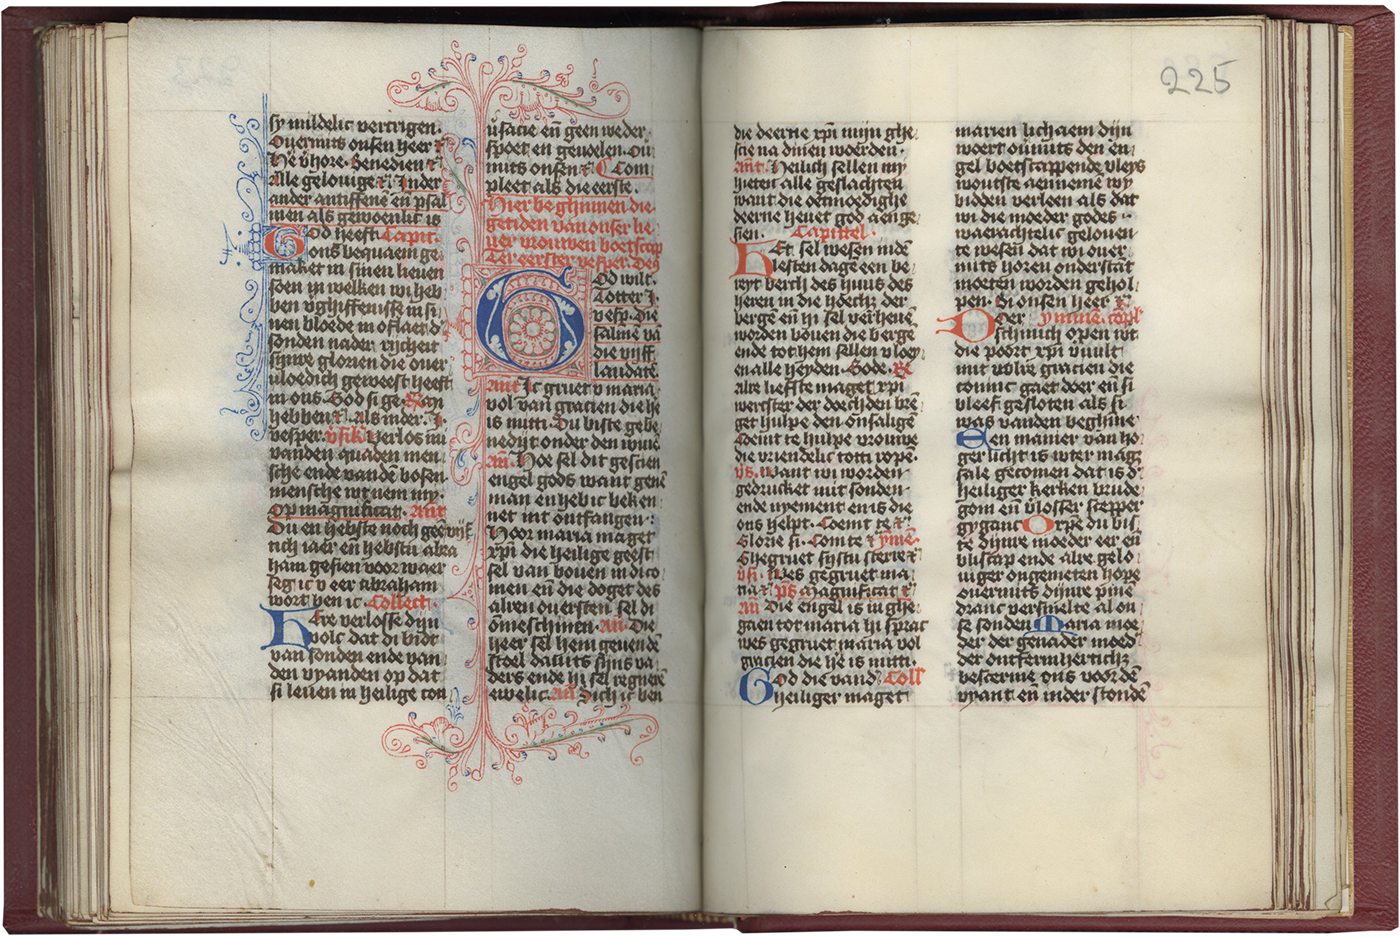 sy mildelic vercrigen.
Ouermits onsen heer
He v̄hore. Benedien
Alle gelouige Inder
ander antiffene en psal
men als gewoenlic is
God heeft Capit.
ons bequaem ge
maket in sinen lieuen
soen in welken wi heb
ben v̄ghiffenisse in si
nen bloede in oflaet d'
sonden nader rijcheit
sijnre glorien die ouer
uloedich geweest heeft
in ons. God si ge.
hebben Als inder. I.
vesper. Verlos mi
vanden quaden men
sche ende vandē bosen
mensche wt nem my.
Op magnificat. Ant
Du en hebste noch gee vijf
tich iaer eñ hebstu abra
ham gesien voor waer
seg ic v eer abraham
wort ben ic. Collect.
Here verlosse dijn
volc dat di bidt
van sonden ende van
den vyanden op dat
si leuen in heilige con
usacie eñ geen weder
spoet en geuoelen. Ou
mits onsen Com
pleet als die eerste.
Hier beghinnen die
getiden van onser lie
uer vrouwen boetscap
Ter eerster vesper. De9
God wilt.
Totter I.
vesp. die
salme vā
die vijff
laudate
Ant Ic gruet v maria
vol van gracien die he
is mitti. Du biste gebe
nedijt onder den wiue
An. Hoe sel dit gescien
engel gods want genē
man en heb ic beken
net int ontfangen:
Hoor maria maget
xpī die heilige geest
sel van bouen in di co
men eñ die doget des
alren ouersten sel di
ōmeschinen. An. Die
heer sel hem geuen dē
stoel dauits sijns va
ders ende hi sel regnerē
ewelic. An. Sich ic ben
225
die deerne xpī mijn ghe
scie na dinen woerden.
Ant. Heilich sellen my
hieten alle geslachten
want die oetmoedighe
deerne heuet god aenge
sien. Capittel.
Het sel wesen indē
lesten dagē een be
reyt berch des huus des
heren in die hoecht der
bergē eñ hi sel verheuē
worden bouen die bergē
ende tot hem sellen vloey
en alle heyden. Gode.
Alre liefste maget xpī
werster der doechden brē
get hulpe den onsaligē
Coemt te hulpe vrouwe
die vriendelic totti ropē.
vs. Want wi worden
gedrucket mit sonden
ende nyement en is die
ons helpt. Coemt te
Glorie si. Com te ymnē.
Ghegruet systu sterre
vs. Wes gegruet ma
ria ps Magnificat
An Die engel is in ghe
gaen tot maria hi sprac
wes gegruet maria vol
gracien die hē is mitti.
God die vand Coll
heiliger maget
marien lichaem dijn
woert ouūits den en
gel boetscappende vleys
woutste aennemē wy
bidden verleen als dat
wi die moeder godes
waerachtelic gelouen
te wesen dat wi ouer
mits horen onderstāt
moeten worden gehol
pen. Bi onsen heer
Oder ymme. cōpl
schinich open wt
die poort xpī vuult
mit volre gracien die
coninc gaet doer eñ si
bleef gesloten als si
was vanden beghinne
Een manier van ho
ger licht is wter mag
sale gecomen dat is d'
heiliger kerken brude
gom eñ v̄losser stepper
gygant Orye du bis
te dijnre moeder eer eñ
blijscap ende alre gelo
uiger ongemeten hope
ouermits dijnre pine
dranc versmelte al on
se sonden Maria moe
der der genader moed
der ontfermhertich
bescerme ons voor dē
vyant en inder stondē